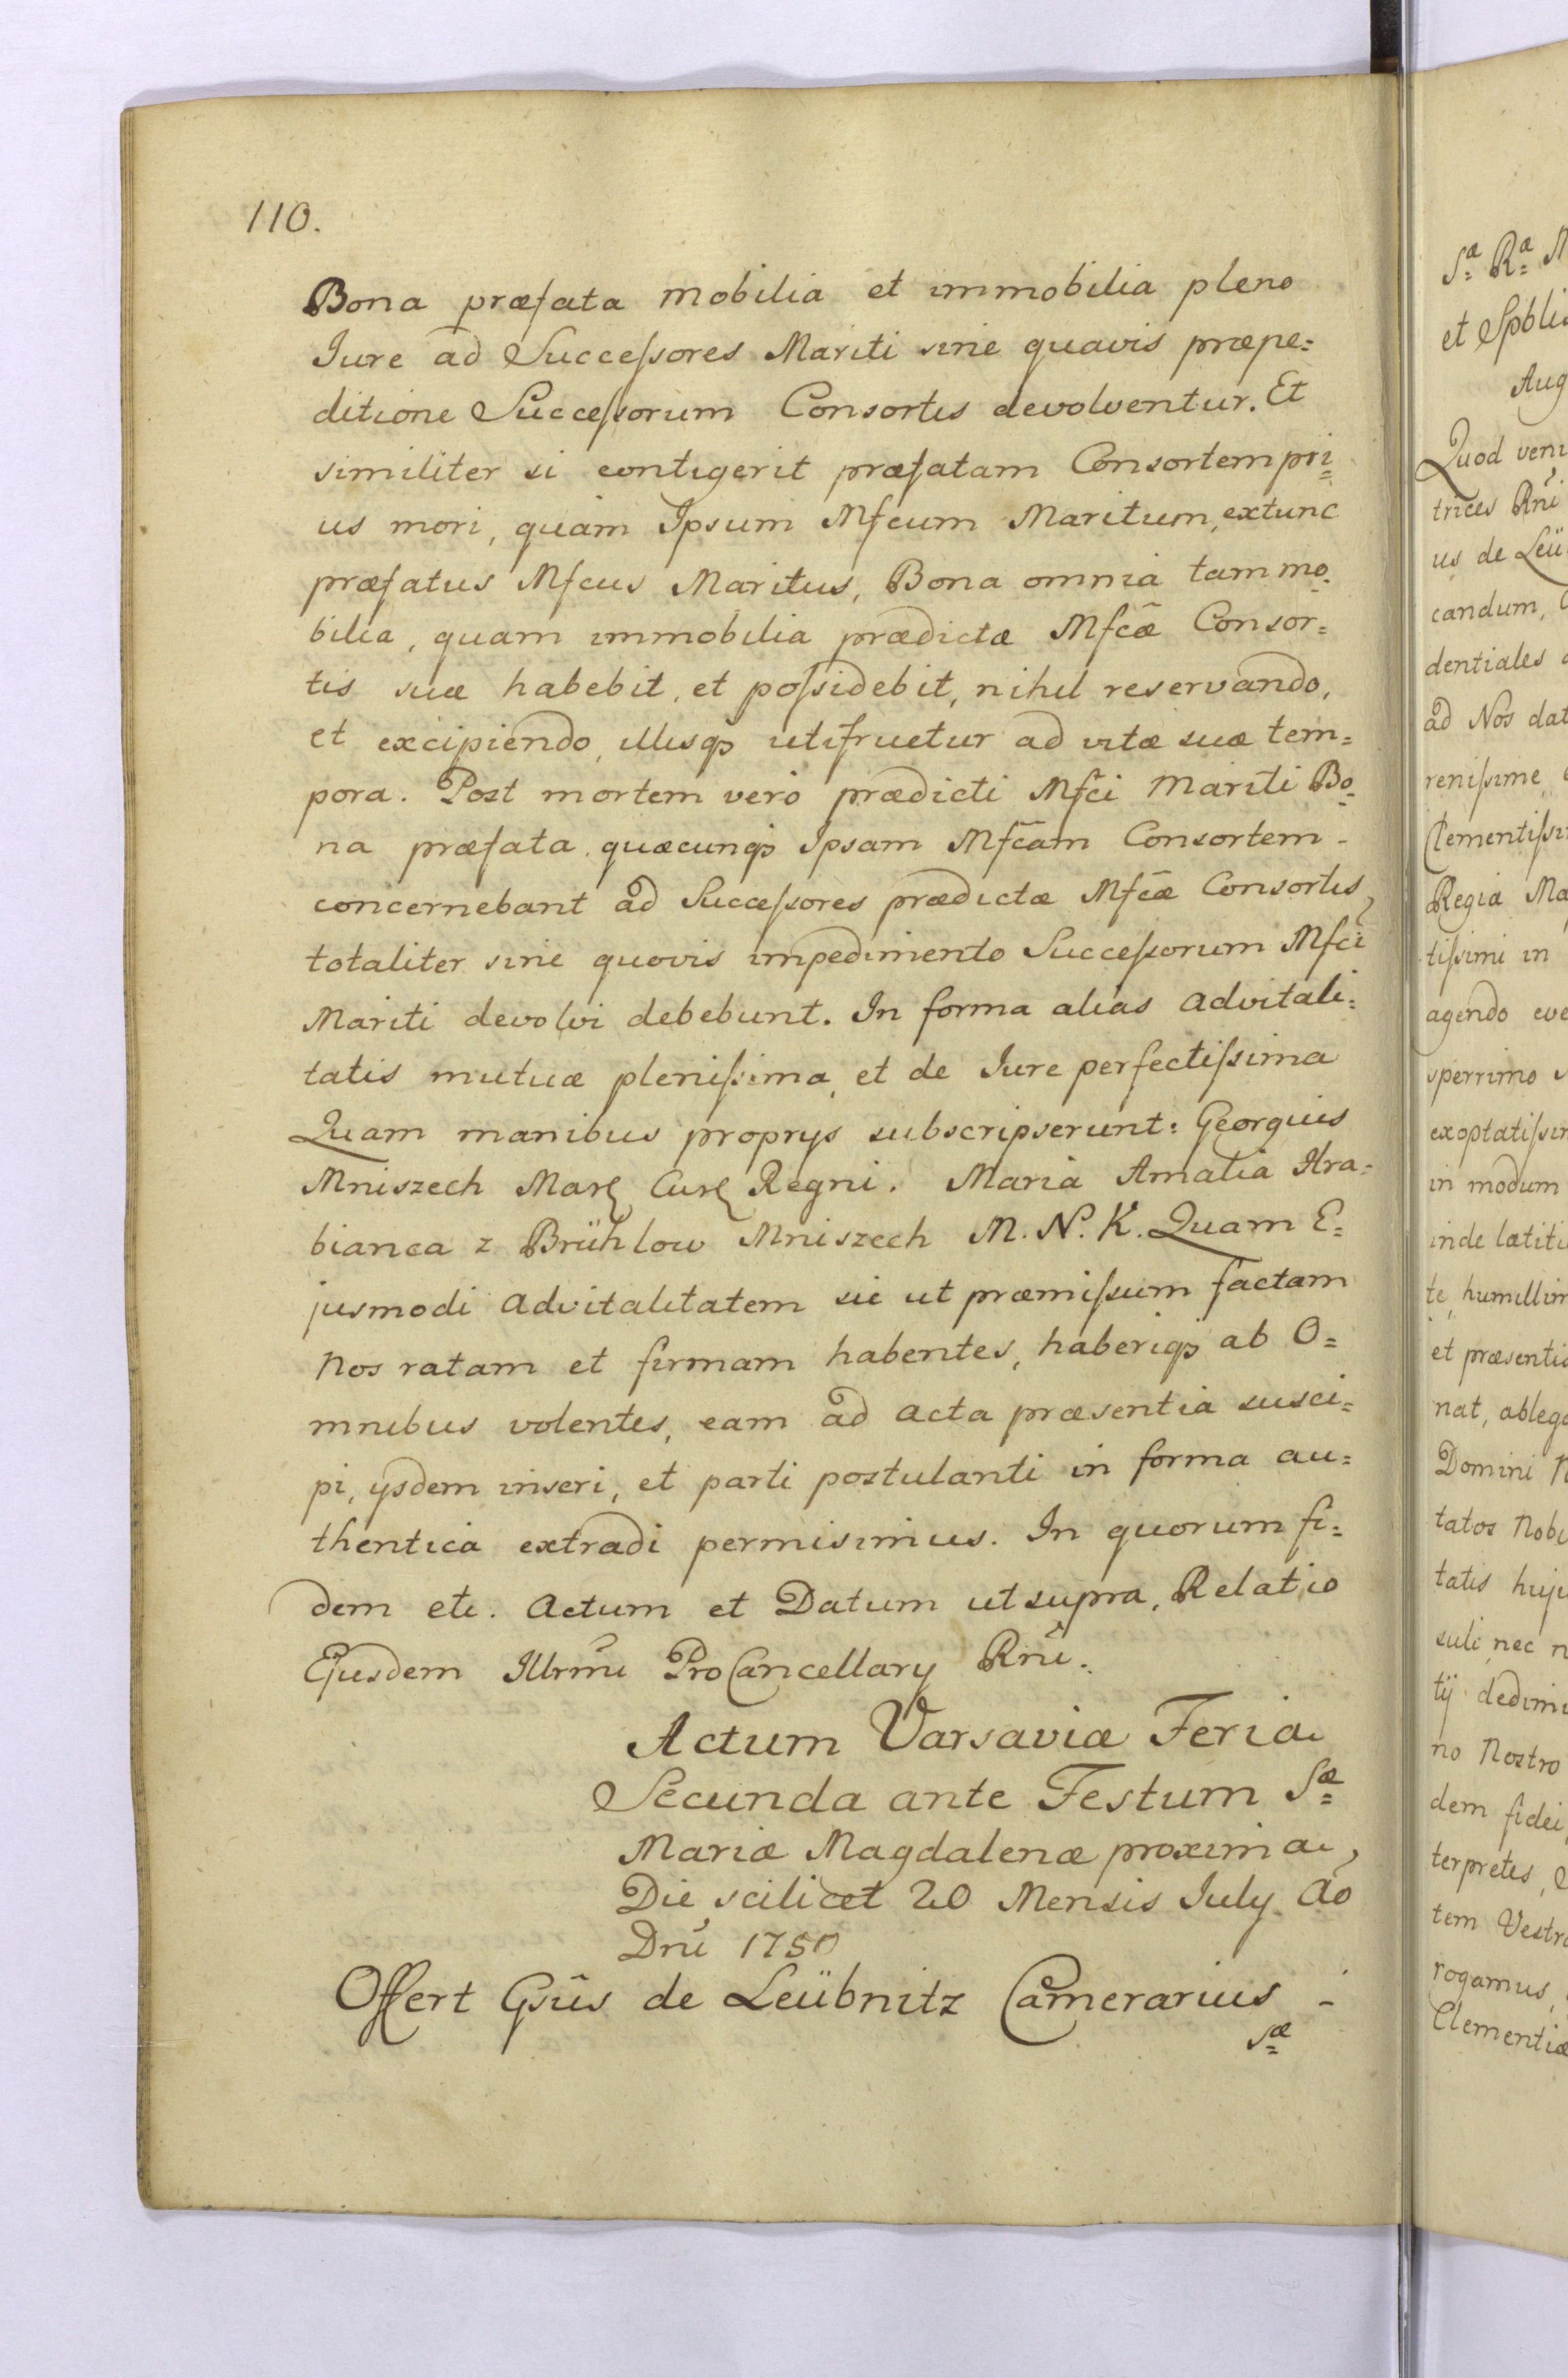 110.
Bona præfata mobilia et immobilia pleno
Iure ad Successores Mariti sine quavis præpe=
ditione Successorum Consortis devolventur. Et
similiter si contigerit præfatam Consortem pri=
us mori, quam Ipsum Mfcum Maritum, extunc
præfatus Mfcus Maritus, Bona omnia tam mo=
bilia, quam immobilia prædictæ Mfcæ Consor=
tis suæ habebit, et possidebit, nihil reservando,
et excipiendo, illisq3 utifruetur ad vitæ suæ tem=
pora. Post mortem vero prædicti Mfci Mariti Bo=
na præfata, quæcunq3 Ipsam Mfcam Consortem -
concernebant ad Successores prædictæ Mfcæ Consortis,
totaliter sine quovis impedimento Successorum Mfci
Mariti devolvi debebunt. In forma alias advitali=
tatis mutuæ plenissima, et de Iure perfectissima
Quam manibus proprys subscripserunt: Georgius
Mniszech Marl Curl Regni. Maria Amalia Hra=
bianca z Brühlow Mniszech M. N. K. Quam E=
jusmodi advitalitatem sic ut præmissum factam
Nos ratam et firmam habentes, haberiq3 ab O=
mnibus volentes, eam ad acta præsentia susci=
pi, ysdem inseri, et parti postulanti in forma au=
thentica extradi permisimus. In quorum fi=
dem etc. Actum et Datum ut supra, Relatio
Ejusdem Illrmi ProCancellary Rni.
Actum Varsaviæ Feria
Secunda ante Festum Sæ=
Mariæ Magdalenæ proxima,
Die scilicet 20 Mensis July Ao
Dni 1750
Offert Gsus de Leübnitz Camerarius -
Sæ=
Sæ= Ræ= M
et Spblis
Aug
Quod veni
trices Rni
us de Leü
candum,
dentiales
ad Nos dat
renissime
Clementissi
Regia Ma
tissimi in
agendo eve
sperrimo
exoptatissi
in modum
inde lætiti
te, humillim
et præsentia
nat, ablega
Domini N
tatos Nobi
tatis huju
suli, nec n
tij dedimu
no Nostro
dem fidei
terpretes,
tem Vestra
rogamus,
Clementiæ